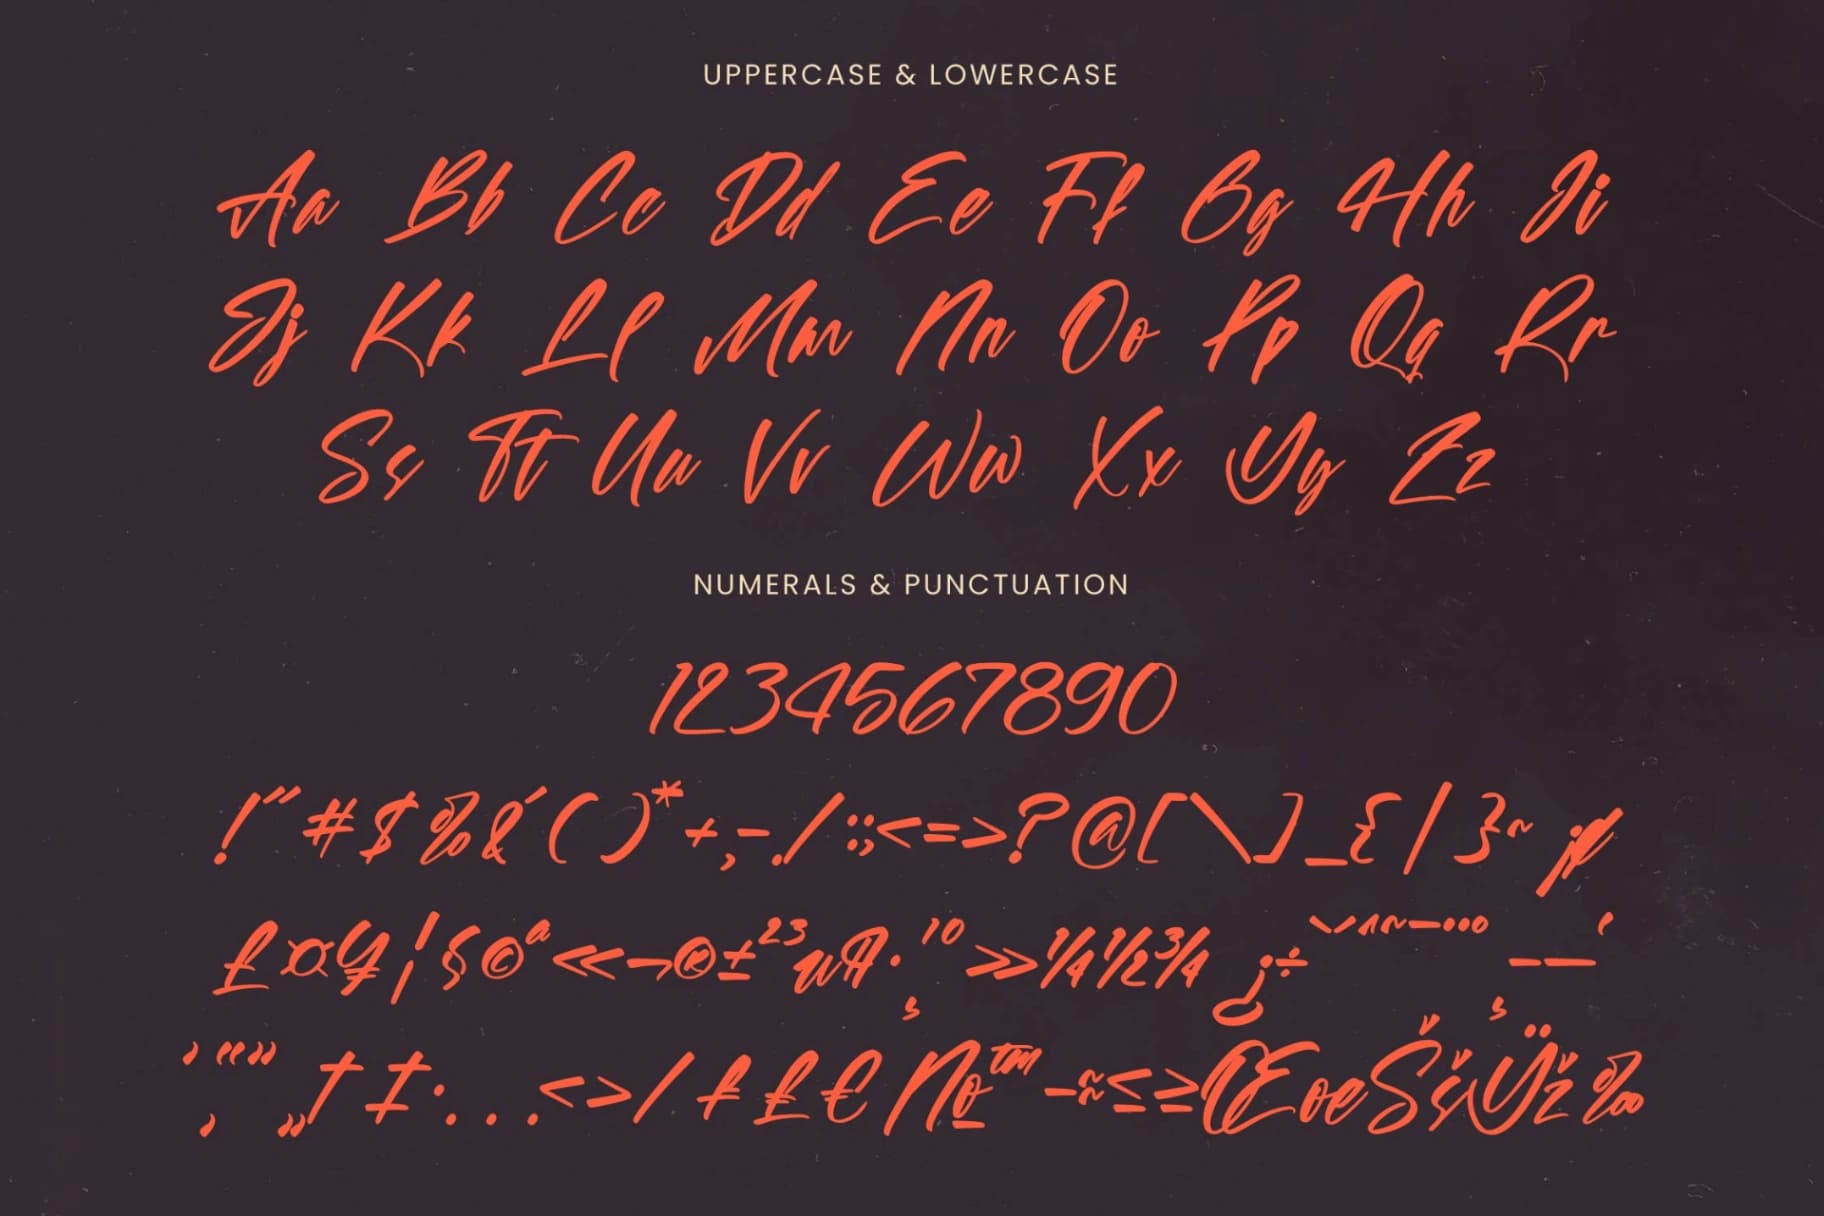 UPPERCASE & LOWERCASE
Aa Bb Cc Dd Ee Ff Gg Hh Ii
Jj Kk Ll Mm Nn Oo Pp Qq Rr
Ss Tt Uu Vv Ww Xx Yy Zz
NUMERALS & PUNCTUATION
1234567890
!"#$%&´()*+,-./:;<=>?@[\]_{|}~
£¤¥¦§©ª«¬®±²³µ¶·¸¹º»¼½¾¿÷ˇˆ˜¯
‚ “” „†‡•...<>/₤€№™−≈≤≥ŒœŠšŸž‰